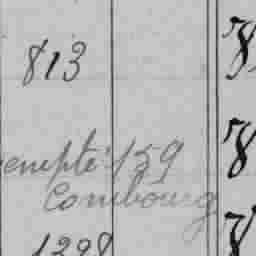 813
empte 159
Combourg
1298